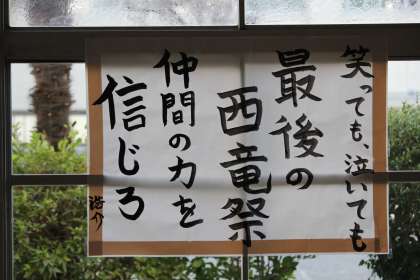 笑っても、泣いても
最後の
西竜祭
仲間の力を
信じろ